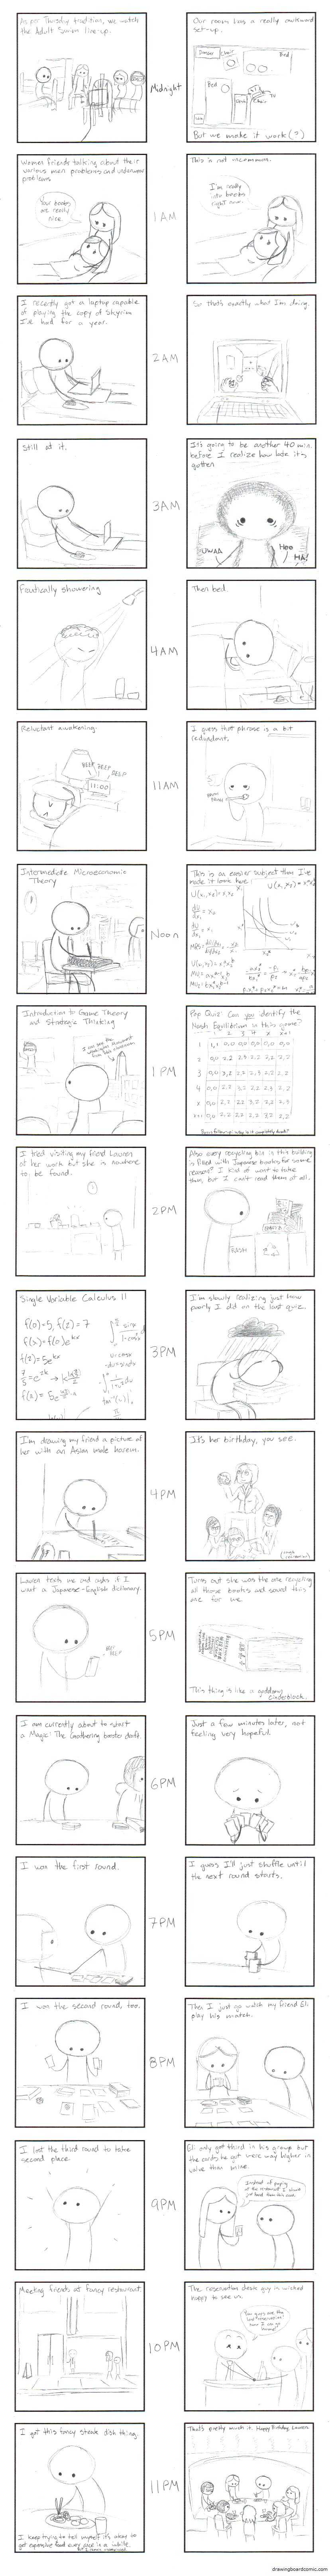 As per Thursday tradition, we watch
the Adult Swim line-up.
Midnight
Our room has a really awkward
set-up.
Dresser
Chair
Bed
Bed
Desk
Chair
TV
But we make it work(?)
Women friends talking about their
various men problems and underwear
problems
Your boobs
are really
nice.
1AM
This is not uncommon.
I'm really
into boobs
right now.
I recently got a laptop capable
of playing the copy of Skyrim
I've had for a year.
2AM
So that's exactly what I'm doing.
Still at it.
3AM
It's going to be another 40 min.
before I realize how late it's
gotten
UWAA
Hee
HA!
Frantically showering
4AM
Then bed.
Reluctant awakening.
BEEP BEEP
BEEP
11:00
11AM
I guess that phrase is a bit
redundant.
Intermediate Microeconomic
Theory
Noon
This is an easier subject than I've
made it look here.
Introduction to Game Theory
and Strategic Thinking
1PM
Pop Quiz: Can you identify the
Nash Equilibrium in this game?
I tried visiting my friend Lauren
at her work but she is nowhere
to be found.
2PM
Also every recycling bin in this building
is filled with Japanese books for some
reason? I kind of want to take
them, but I can't read them at all.
TRASH
Single Variable Calculus II
f(0)=5, f(2)=7
f(x)=f(0)e^kx
f(2)=5e^kx
3PM
I'm slowly realizing just how
poorly I did on the last quiz.
I'm drawing my friend a picture of
her with an Asian male harem.
4PM
It's her birthday, you see.
Lauren texts me and asks if I
want a Japanese-English dictionary.
BEEP
BEEP
5PM
Turns out she was the one recycling
all those books and saved this
one for me.
This thing is like a goddamn
cinderblock.
I am currently about to start
a Magic: The Gathering booster draft.
6PM
Just a few minutes later, not
feeling very hopeful.
I won the first round.
7PM
I guess I'll just shuffle until
the next round starts.
I won the second round, too.
8PM
Then I just go watch my friend Eli
play his match.
I lost the third round to take
second place.
9PM
Eli only got third in his group but
the cards he got were way higher in
value than mine.
Instead of paying
at the restaurant I should
just hand them this card.
Meeting friends at fancy restaurant.
10PM
The reservation desk guy is wicked
happy to see us.
You guys are the
last reservation!
Now I can go
home!
I got this fancy steak dish thing.
I keep trying to tell myself it's okay to
get expensive food every once in a while
11PM
That's pretty much it. Happy Birthday Lauren.
drawingboardcomic.com